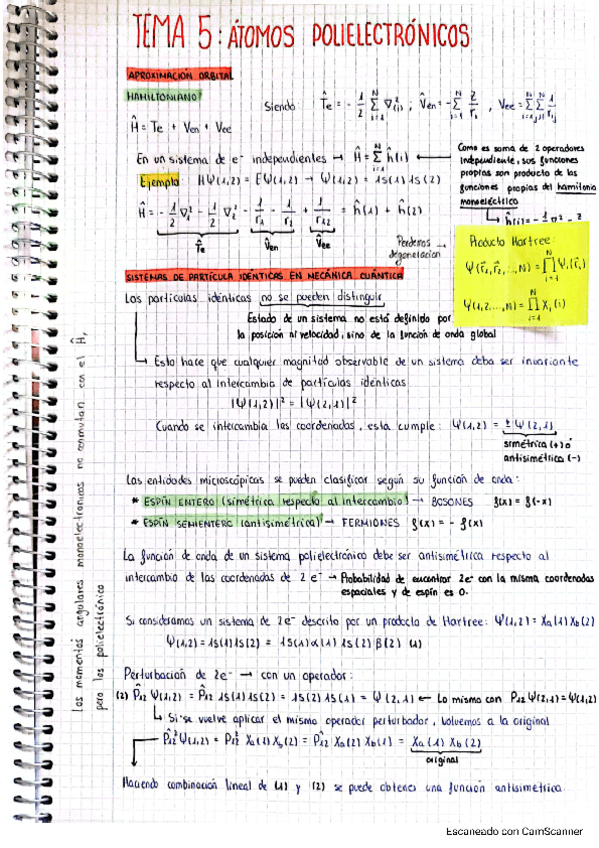 TEMA 5: ÁTOMOS POLIELECTRÓNICOS
APROXIMACIÓN ORBITAL
HAMILTONIANO
Siendo: T̂e = - 1/2 Σ(i=1, N) ∇²(i) ; V̂en = - Σ(i=1, N) Z/ri , Vee = Σ(i=1, N) Σ(j>i, N) 1/rij
Ĥ = Te + Ven + Vee
En un sistema de e⁻ independientes → Ĥ = Σ(i=1, N) ĥ(i) ←
Como es soma de 2 operadores
independiente, sus funciones
propias son producto de las
funciones propias del hamiltonia
monoeléctrico
ĥ(i) = - 1/2 ∇² - Z
Ejemplo: HΨ(1,2) = EΨ(1,2) → Ψ(1,2) = 1s(1) 1s(2)
Ĥ = - 1/2 ∇²₁ - 1/2 ∇²₂ - 1/r₁ - 1/r₂ + 1/r₁₂ = ĥ(1) + ĥ(2)
T̂e V̂en V̂ee
Perdemos → degeneracion
Producto Hartree:
Ψ(r⃗₁, r⃗₂, ..., N) = ∏(i=1, N) Ψi(r⃗i)
Ψ(1,2,...,N) = ∏(i=1, N) Xi(i)
SISTEMAS DE PARTÍCULA IDÉNTICAS EN MECÁNICA CUÁNTICA
Las partículas idénticas no se pueden distinguir
Estado de un sistema no está definido por
la posición ni velocidad, sino de la función de onda global
Esto hace que cualquier magnitud observable de un sistema deba ser invariante
respecto al intercambio de partículas idénticas
|Ψ(1,2)|² = |Ψ(2,1)|²
Cuando se intercambia las coordenadas, esta cumple: Ψ(1,2) = ± Ψ(2,1)
simétrica (+) ó
antisimétrica (-)
Las entidades microscópicas se pueden clasificar según su función de onda:
* ESPÍN ENTERO (simétrica respecto al intercambio) → BOSONES f(x) = f(-x)
* ESPÍN SEMIENTERO (antisimétrica) → FERMIONES f(x) = - f(x)
La función de onda de un sistema polieléctrónico debe ser antisimétrica respecto al
intercambio de las coordenadas de 2 e⁻ → Probabilidad de encontrar 2e⁻ con la misma coordenadas
espaciales y de espín es 0.
Si consideramos un sistema de 2e⁻ descrito por un producto de Hartree: Ψ(1,2) = Xa(1) Xb(2)
Ψ(1,2) = 1s(1) 1s(2) = 1s(1) α(1) 1s(2) β(2) (1)
Perturbación de 2e⁻ → con un operador:
(2) P̂12 Ψ(1,2) = P̂12 1s(1) 1s(2) = 1s(2) 1s(1) = Ψ(2,1) ← Lo mismo con P12 Ψ(2,1) = Ψ(1,2)
Si se vuelve aplicar el mismo operador perturbador, volvemos a la original
P̂12² Ψ(1,2) = P̂12² Xa(1) Xb(2) = P̂12 Xa(2) Xb(1) = Xa(1) Xb(2)
original
Haciendo combinación lineal de (1) y (2) se puede obtenes una función antisimetrica.
Los momentos angulares monoelectronicos no conmutan en el Ĥ,
pero los polielectrónica
Escaneado con CamScanner